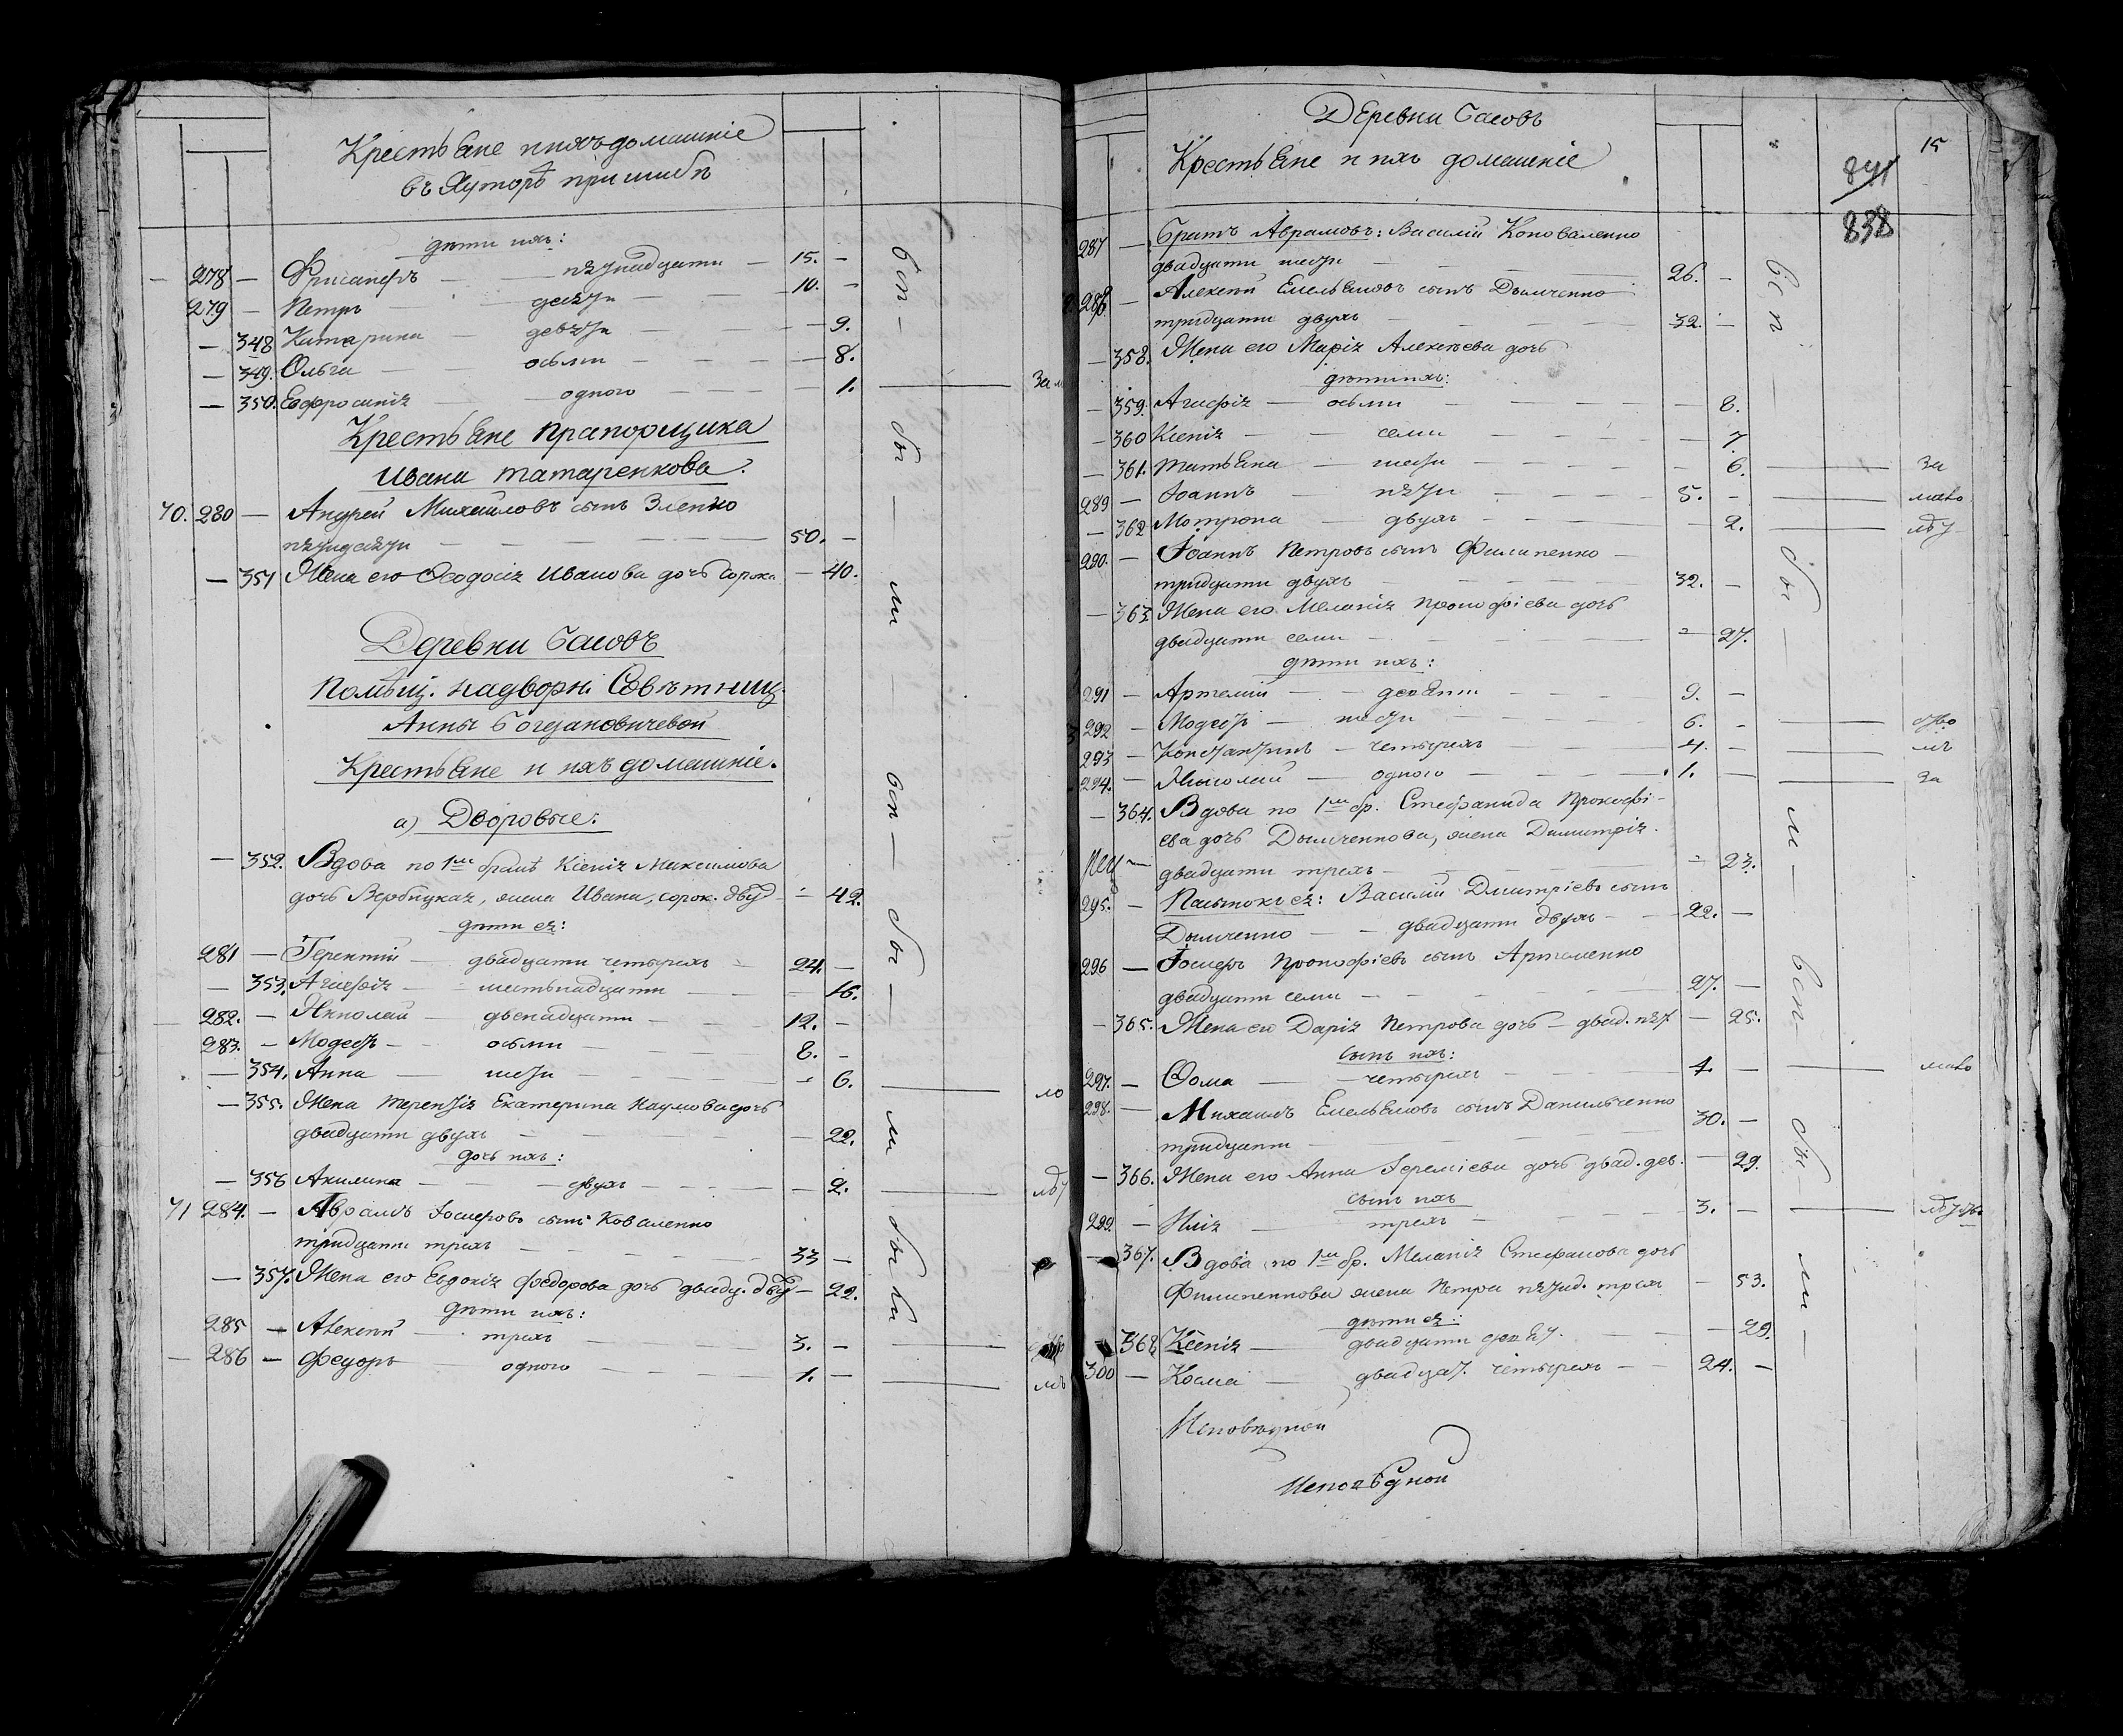 Крестьяне и ихъ домашніе
въ Хуторѣ при
дѣти ихъ:
278 — пятнадцати — 15. —
279 — Петръ десяти — 10. —
— 348 Катерина — девяти — 9.
— 349. Ольга — осьми — 8.
— 350. Евфросинія одного — 1.
Крестьяне Прапорщика
Ивана Татаренкова.
70. 280 — Андрей Михайловъ сынъ Зленко
пятидесяти — 50. —
— 351 Жена его Ѳеодосія Иванова дочь сорока — 40.
Деревни Басовъ
Помѣщ. надворн. Совѣтниц.
Анны Богдановичевой
Крестьяне и ихъ домашніе.
а) Дворовые:
— 352. Вдова по 1мъ бракѣ Ксенія Максимова
дочь Вербицкая, жена Ивана, сорок. двуд — 42.
дѣти ея:
281 — Терентій — двадцати четырехъ — 24. —
— 353. Агафія — шестьнадцати — 16.
282. — Николай — двенадцати — 12. —
283. — Модестъ — осьми — 8. —
— 354. Анна — шести — 6.
— 355. Жена Терентія Екатерина Наумова дочь
двадцати двухъ — 22.
дочь ихъ:
— 356 Акилина — двухъ — 2.
71 284. — Аврамъ Іосифовъ сынъ Коваленко
тридцати трехъ — 33 —
— 357. Жена его Евдокія Федорова дочь двадц. двд — 22.
дѣти ихъ:
285 — Алексій — трехъ — 3. —
286 — Федоръ одного — 1. —
Деревни Басовъ
Крестьяне и ихъ домашніе
15
841
838
287 — Братъ Аврамовъ: Василій Коноваленко
двадцати шести 26. —
288. — Алексій Емельяновъ сынъ Дьомченко
тридцати двухъ — 32. —
— 358. Жена его Марія Алексѣева дочь
дѣти ихъ:
— 359. Агафія — осьми — 8.
— 360 Ксенія — семи — 7.
— 361. Татьяна — шести — 6. — за
289 — Іоаннъ — пяти — 5. — мало
— 362 Мотрона — двухъ — 2.
290. — Іоаннъ Петровъ сынъ Филипенко —
тридцати двухъ 32. —
— 363 Жена его Меланія Прокофіева дочь
двадцати семи — 27.
дѣти ихъ:
291 — Артемій — девяти 9. —
292 — Модестъ — шести 6. —
293 — Константинъ — четырехъ 4. —
294. — Николай — одного 1. — за
— 364. Вдова по 1мъ бр. Стефанида Прокофі-
ева дочь Дьомченкова, жена Димитрія.
двадцати трехъ — 23.
295. — Пасынокъ ея: Василій Дмитріевъ сынъ
Дьомченко — двадцати двухъ — 22. —
296 — Іосифъ Прокофіевъ сынъ Артеменко
двадцати семи — 27. —
— 365. Жена его Дарія Петрова дочь — двад. пят — 25.
сынъ ихъ:
297. — Ѳома — четырехъ — 4. — мало
298. — Михаилъ Емельяновъ сынъ Данильченко
тридцати — 30. —
— 366. Жена его Анна Іереміева дочь двад. дев. — 29.
сынъ ихъ
299. — Илія трехъ — 3. —
— 367. Вдова по 1мъ бр. Меланія Стефанова дочь
Филипенкова жена Петра пятид. трехъ — 53.
дѣти ея:
368 Ксенія — двадцати девят. — 29.
300 — Косма — двадцат. четырехъ — 24. —